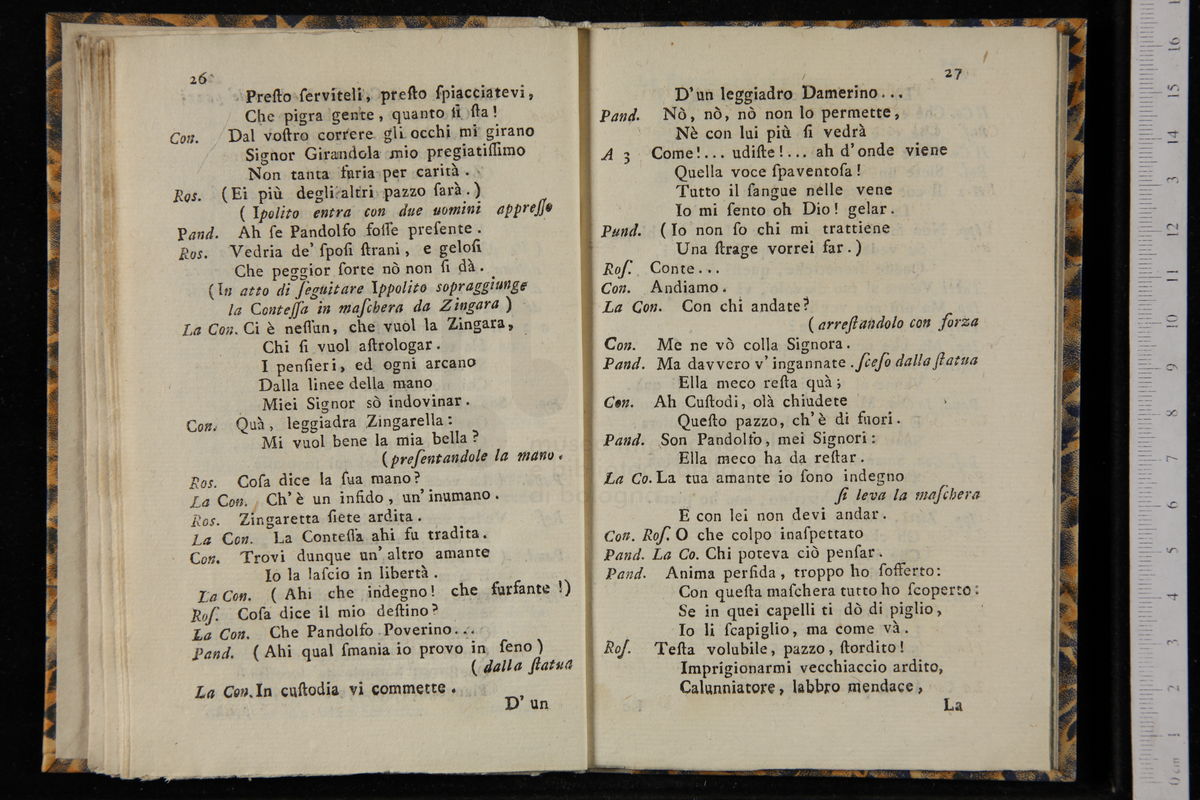 26
Preſto ſerviteli, preſto ſpiacciatevi,
Che pigra gente, quanto ſi ſta!
Con. Dal voſtro correre gli occhi mi girano
Signor Girandola mio pregiatiſſimo
Non tanta furia per carità.
Ros. (Ei più degli altri pazzo ſarà.)
(Ipolito entra con due uomini appreſſo
Pand. Ah ſe Pandolfo foſſe preſente.
Ros. Vedria de' ſpoſi ſtrani, e geloſi
Che peggior ſorte nò non ſi dà.
(In atto di ſeguitare Ippolito sopraggiunge
la Conteſſa in maſchera da Zingara)
La Con. Ci è neſſun, che vuol la Zingara,
Chi ſi vuol aſtrologar.
I penſieri, ed ogni arcano
Dalla linee della mano
Miei Signor sò indovinar.
Con. Quà, leggiadra Zingarella:
Mi vuol bene la mia bella?
(preſentandole la mano.
Ros. Coſa dice la ſua mano?
La Con. Ch'è un infido, un'inumano.
Ros. Zingaretta ſiete ardita.
La Con. La Conteſſa ahi fu tradita.
Con. Trovi dunque un'altro amante
Io la laſcio in libertà.
La Con. (Ahi che indegno! che furfante!)
Roſ. Coſa dice il mio deſtino?
La Con. Che Pandolfo Poverino...
Pand. (Ahi qual ſmania io provo in ſeno)
(dalla ſtatua
La Con. In cuſtodia vi commette.
D'un
27
D'un leggiadro Damerino...
Pand. Nò, nò, nò non lo permette,
Nè con lui più ſi vedrà
A 3 Come!... udiſte!... ah d'onde viene
Quella voce ſpaventoſa!
Tutto il ſangue nelle vene
Io mi ſento oh Dio! gelar.
Pund. (Io non ſo chi mi trattiene
Una ſtrage vorrei far.)
Roſ. Conte...
Con. Andiamo.
La Con. Con chi andate?
(arreſtandolo con forza
Con. Me ne vò colla Signora.
Pand. Ma davvero v'ingannate. ſceſo dalla ſtatua
Ella meco reſta quà;
Con. Ah Cuſtodi, olà chiudete
Queſto pazzo, ch'è di fuori.
Pand. Son Pandolfo, mei Signori:
Ella meco ha da reſtar.
La Co. La tua amante io ſono indegno
ſi leva la maſchera
E con lei non devi andar.
Con. Roſ. O che colpo inaſpettato
Pand. La Co. Chi poteva ciò penſar.
Pand. Anima perfida, troppo ho ſofferto:
Con queſta maſchera tutto ho ſcoperto:
Se in quei capelli ti dò di piglio,
Io li ſcapiglio, ma come và.
Roſ. Teſta volubile, pazzo, ſtordito!
Imprigionarmi vecchiaccio ardito,
Calunniatore, labbro mendace,
La
0 cm 1 2 3 4 5 6 7 8 9 10 11 12 13 14 15 16